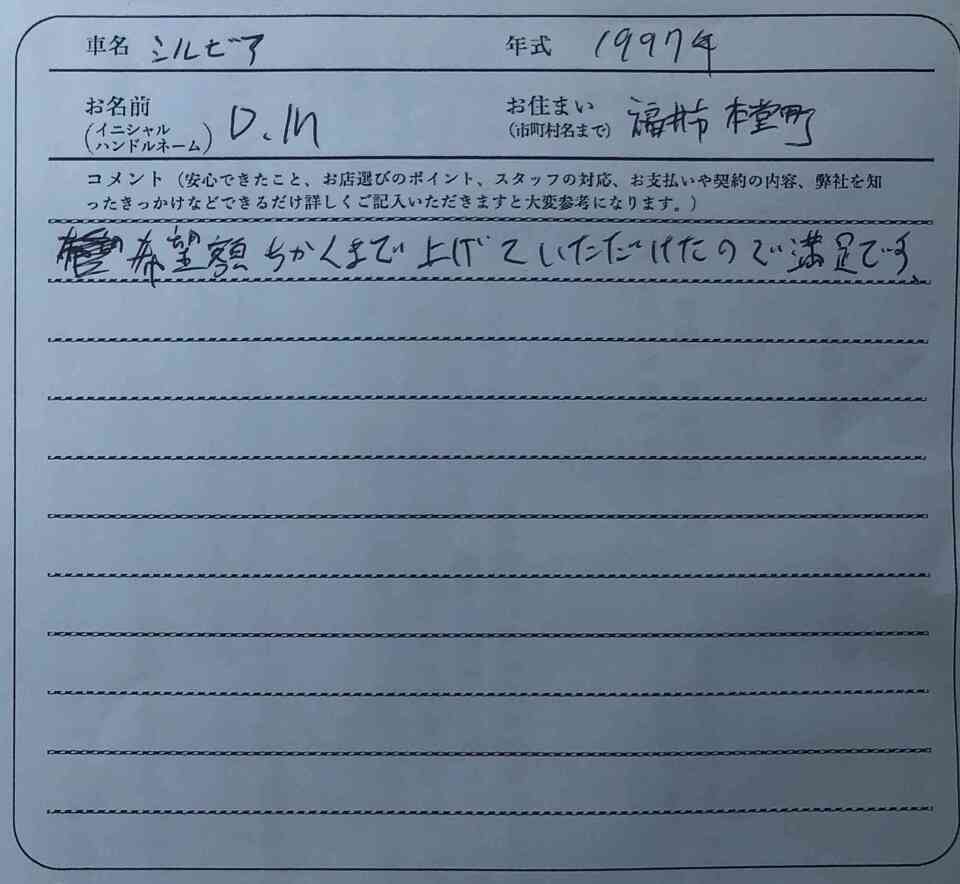 車名 シルビア 年式 1997年
お名前 (イニシャル ハンドルネーム) D.M お住まい (市町村名まで) 福井市 本堂町
コメント（安心できたこと、お店選びのポイント、スタッフの対応、お支払いや契約の内容、弊社を知
ったきっかけなどできるだけ詳しくご記入いただきますと大変参考になります。）
希望額ちかくまで上げていただけたので満足です。